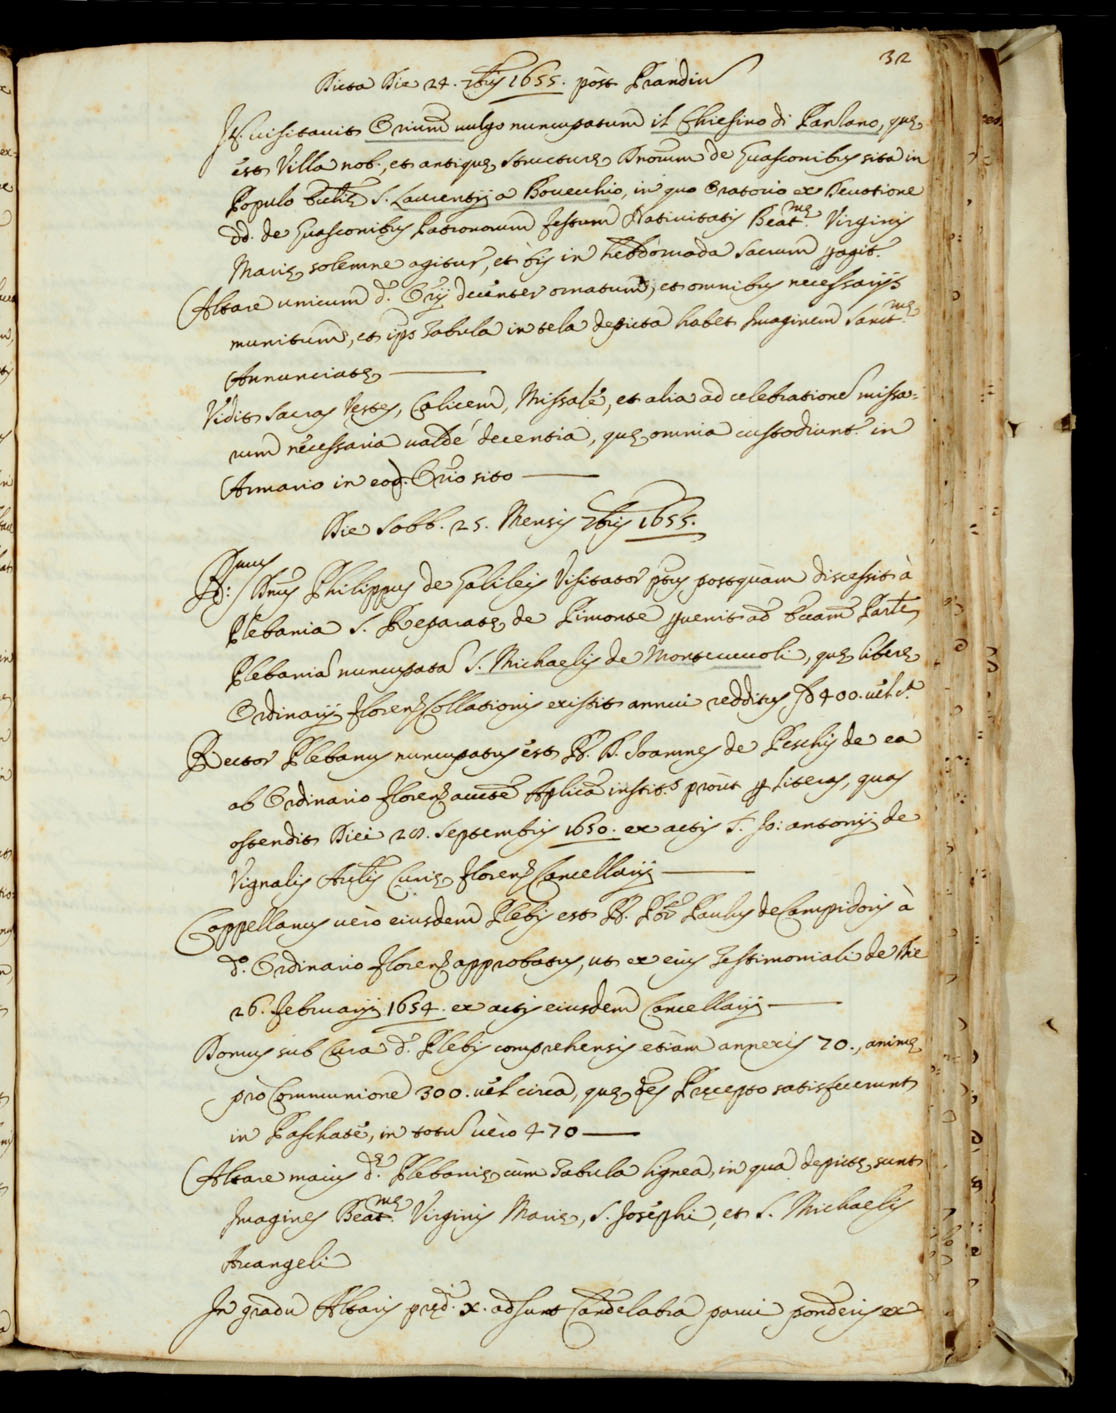 32
Dicta Die 24. 7bris 1655. post Prandiũ
Id. visitavit Orium vulgo nuncupatum il Chiesino di Parlano, quę
est Villa nob., et antiquę structurę Dnorum de Guasconibus sita in
Populo S. Laurentij a Bovecchio, in quo Oratorio ex Devotione
dd. de Guasconibus Patronorum festum Nativitatis Beat.mę Virginis
Marię solemne agitur, et bis in hebdomada sacrum pagit.
Altare unicum d. Orij decenter ornatum, et omnibus necessarijs
munitum, et ips Tabula in tela depicta habet Imaginem Sanct.mę
Annunciatę
Vidit sacras Vestes, Calicem, Missale, et alia ad celebrationẽ missa=
rum necessaria valde decentia, quę omnia custodiunt.r in
Armario in eod. Orio sito
Die Sabb. 25. Mensis 7bris 1655.
Dnus Philippus de Galileis Visitator ptus postquàm discessit à
Plebania S. Reparatę de Pimonte pvenit ad
Plebaniã nuncupatã S. Michaelis de Montecuccoli, quę liberę
Ordinarij Floren. Collationis existit annui redditus 400. vel c.a
Rector Plebanus nuncupatus est R. D. Joannes de Peschis de ea
ab Ordinario Floren. aucte Aplica instit.s prout p literas, quas
ostendit Diei 28. Septembris 1650. ex actis S. Jo: antonij de
Vignalis Curię Floren. Cancellarij
Cappellanus vero eiusdem Plebis est R. Pbr Paulus de Campidoris à
d.o Ordinario Floren. approbatus, ut ex eius Testimoniali de Die
26. Februarij 1654. ex actis eiusdem Cancellarij
Domus sub Cura d. Plebis comprehensis etiam annexis 70., animę
pro Communione 300. vel circa, quę Pręcepto satisfecerunt
in Paschate, in totũ vero 470
Altare maius d.ę Plebanię cum Tabula lignea, in qua depictę sunt
Imagines Beat.mę Virginis Marię, S. Josephi, et S. Michaelis
Arcangeli
In gradu Altaris pręd.i x. adsunt Candelabra parvi ponderis ex